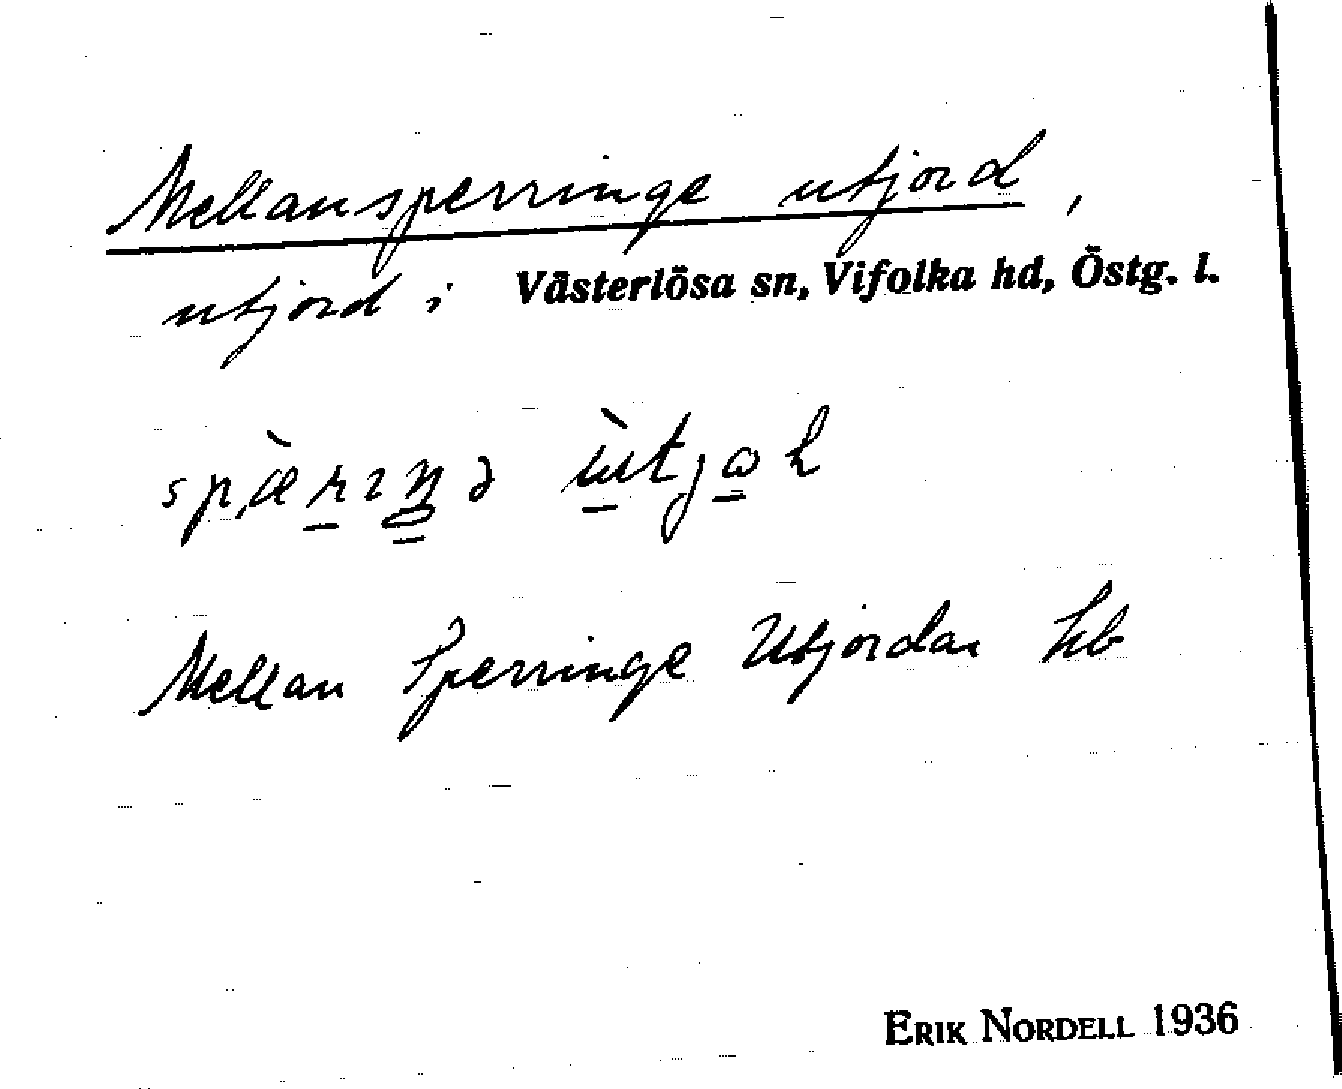 Mellansperringe utjord,
utjord i Västerlösa sn, Vifolka hd, Östg. l.
Mellan Sperringe Utjordar hb
ERIK NORDELL 1936